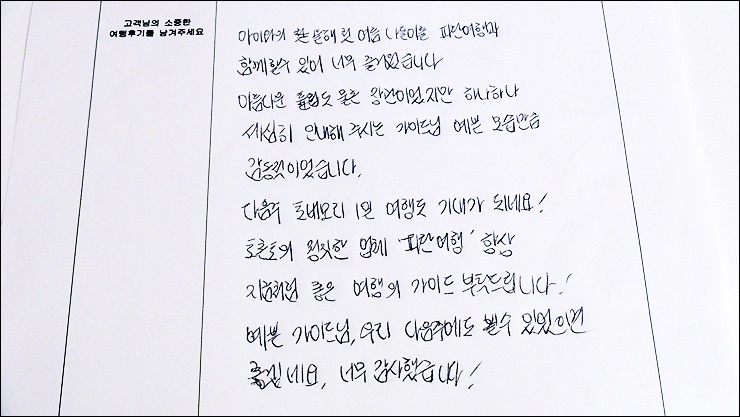 고객님의 소중한
여행후기를 남겨주세요
아이와의 올해 첫 여름 나들이를 파란여행과
함께할수 있어 너무 즐거웠습니다
아름다운 튤립도 물론 장관이었지만 하나하나
세심히 안내해 주시는 가이드님 예쁜 모습만큼
감동적이었습니다.
다음주 토베모리 1일 여행도 기대가 되네요!
토론토의 정직한 업체 '파란여행' 항상
지금처럼 좋은 여행의 가이드 부탁드립니다!
예쁜 가이드님, 우리 다음주에도 뵐수 있었으면
좋겠네요, 너무 감사했습니다!